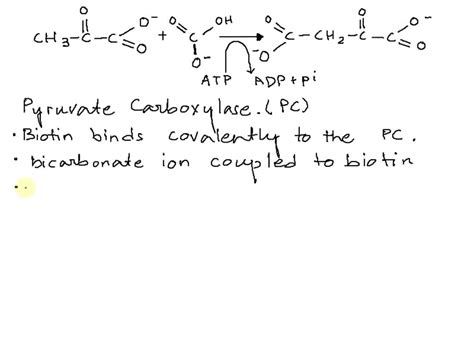 CH3-C-C O- O O + O C OH O- → O C -O -CH2-C-C O O- O
ATP ADP+Pi
Pyruvate Carboxylase. (PC)
• Biotin binds covalently to the PC.
• bicarbonate ion coupled to biotin